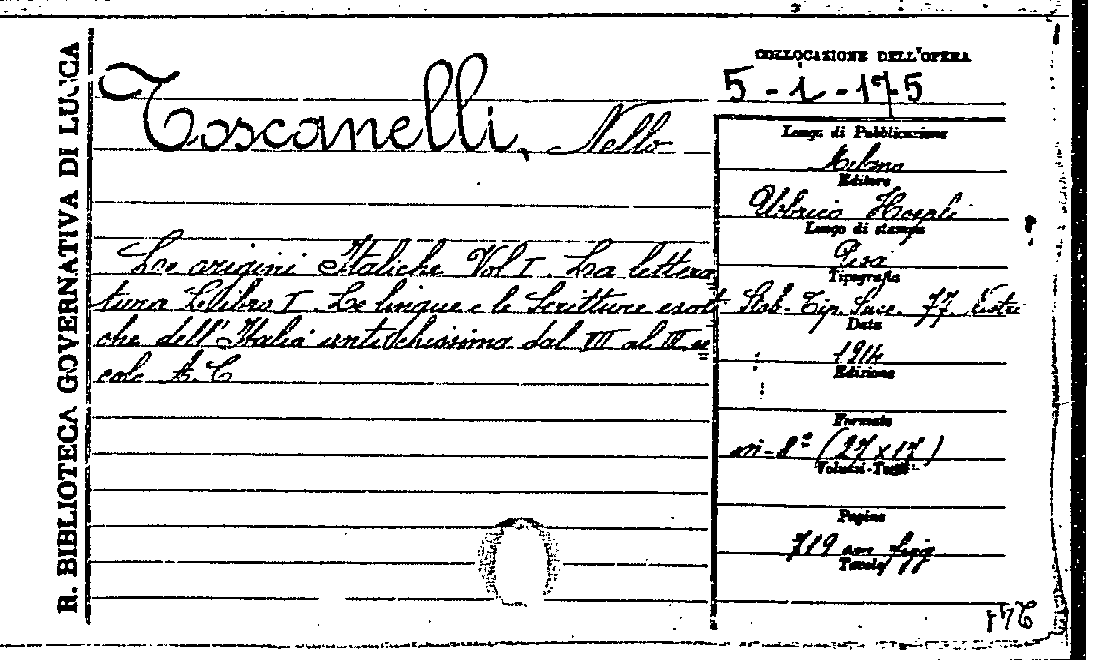 R. BIBLIOTECA GOVERNATIVA DI LUCCA
Toscanelli, Nello
Le origini Italiche Vol I. La lettera
tura Libro I. Le lingue e le Scritture
che dell'Italia antichissima dal VII al II se
colo A.C
COLLOCAZIONE DELL'OPERA
5-1-175
Luogo di Pubblicazione
Milano
Editore
Ulrico Hoepli
Luogo di stampa
Pisa
Tipografia
Stab. Tip. Succ. FF. Nistri
Data
1914
Edizione
Formato
in-8º (27x17)
Volumi-Tomi
Pagine
719 con figg
Tavole